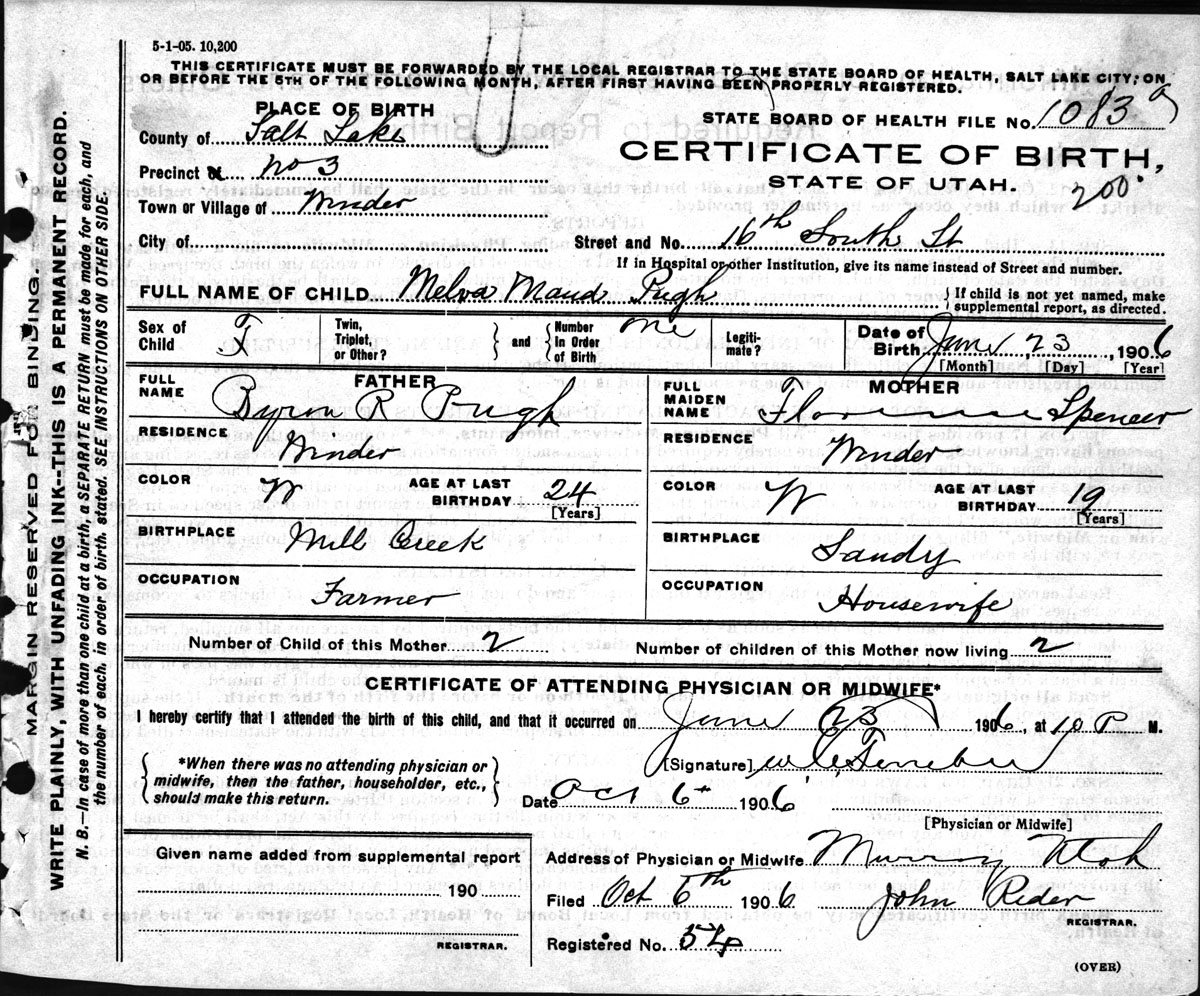 5-1-05. 10,200
THIS CERTIFICATE MUST BE FORWARDED BY THE LOCAL REGISTRAR TO THE STATE BOARD OF HEALTH, SALT LAKE CITY, ON
OR BEFORE THE 5TH OF THE FOLLOWING MONTH, AFTER FIRST HAVING BEEN PROPERLY REGISTERED.
PLACE OF BIRTH
County of Salt Lake
Precinct No 3
Town or Village of Winder
City of
STATE BOARD OF HEALTH FILE No. 1083
CERTIFICATE OF BIRTH,
STATE OF UTAH.
200
Street and No. 16th South St
If in Hospital or other Institution, give its name instead of Street and number.
FULL NAME OF CHILD Melva Maud Pugh { If child is not yet named, make supplemental report, as directed.
Sex of Child F Twin, Triplet, or Other? } and { Number In Order of Birth one Legitimate? Date of Birth June 23, 1906
[Month] [Day] [Year]
FATHER
FULL NAME Byron R Pugh
RESIDENCE Winder
COLOR W AGE AT LAST BIRTHDAY 24
[Years]
BIRTHPLACE Mill Creek
OCCUPATION Farmer
MOTHER
FULL MAIDEN NAME Spencer
RESIDENCE Winder
COLOR W AGE AT LAST BIRTHDAY 19
[Years]
BIRTHPLACE Sandy
OCCUPATION Housewife
Number of Child of this Mother 2 Number of children of this Mother now living 2
CERTIFICATE OF ATTENDING PHYSICIAN OR MIDWIFE*
I hereby certify that I attended the birth of this child, and that it occurred on June 23 1906, at 10 P M.
{ *When there was no attending physician or midwife, then the father, householder, etc., should make this return. }
[Signature]
Date Oct 6th 1906
[Physician or Midwife]
Given name added from supplemental report
190
REGISTRAR.
Address of Physician or Midwife Murray Utah
Filed Oct 6th 1906 John Rider
REGISTRAR.
Registered No. 54
(OVER)
MARGIN RESERVED FOR BINDING.
WRITE PLAINLY, WITH UNFADING INK--THIS IS A PERMANENT RECORD.
N. B.—In case of more than one child at a birth, a SEPARATE RETURN must be made for each, and
the number of each, in order of birth, stated. SEE INSTRUCTIONS ON OTHER SIDE.